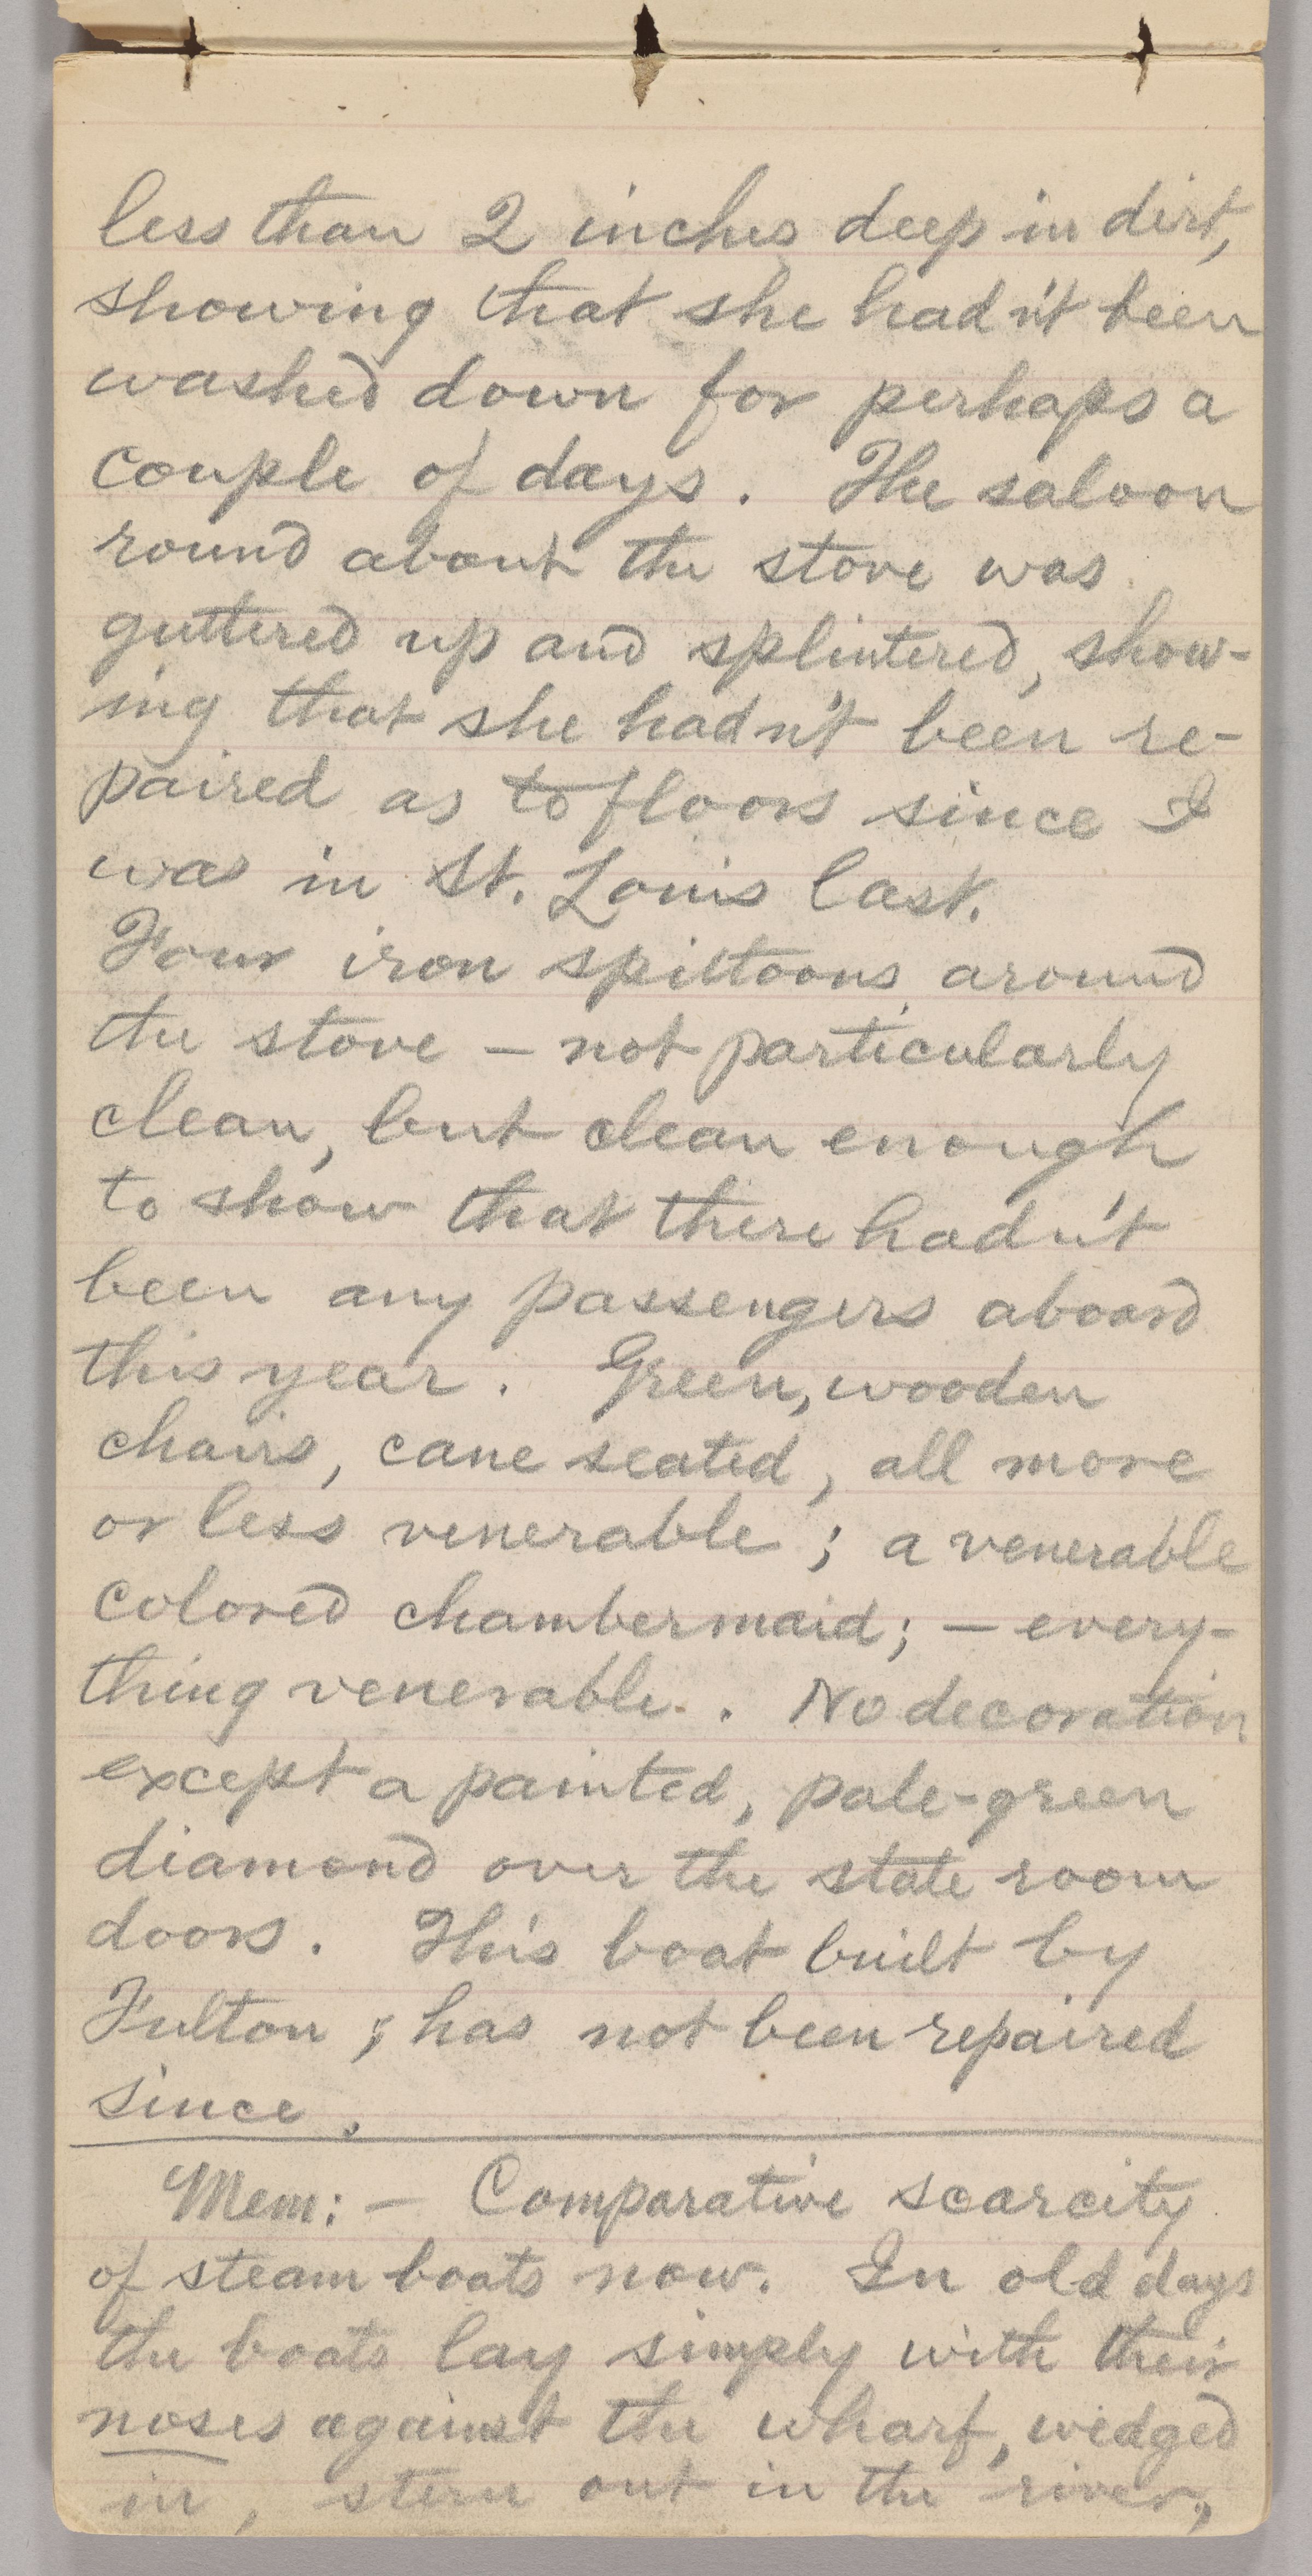 less than 2 inches deep in dirt,
showing that she hadn't been
washed down for perhaps a
couple of days. The saloon
round about the stove was
guttered up and splintered, show-
ing that she hadn't been re-
paired as to floors since I
was in St. Louis last.
Four iron spittoons around
the stove — not particularly
clean, but clean enough
to show that there hadn't
been any passengers aboard
this year. Green, wooden
chairs, cane seated, all more
or less venerable; a venerable
colored chambermaid; — every-
thing venerable. No decoration
except a painted, pale-green
diamond over the state room
doors. This boat built by
Fulton; has not been repaired
since.
Mem: — Comparative scarcity
of steamboats now. In old days
the boats lay simply with their
noses against the wharf, wedged
in, stern out in the river,